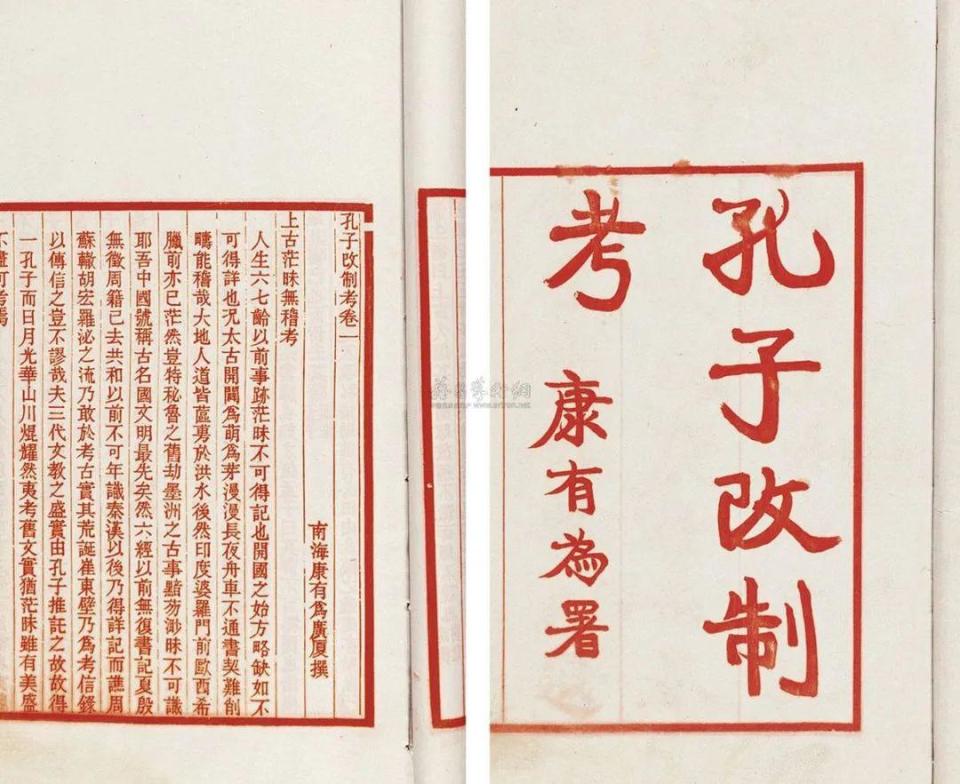 孔子改制
考
康有為署
孔子改制考卷一
南海康有爲廣厦撰
上古茫昧無稽考
人生六七齡以前事跡茫昧不可得記也開國之始方略缺如不
可得詳也況太古開闢爲萌爲芽漫漫長夜舟車不通書契難削
疇能稽哉大地人道皆蓲於洪水後然印度婆羅門前歐西希
臘前亦已茫然豈特秘魯之舊劫墨洲之古事黯芴渺昧不可識
耶吾中國號稱古名國文明最先矣然六經以前無復書記夏殷
無徵周籍已去共和以前不可年識秦漢以後乃得詳記而譙周
蘇轍胡宏羅泌之流乃敢於考古實其荒誕崔東壁乃爲考信錄
以傳信之豈不謬哉夫三代文教之盛實由孔子推託之故故得
一孔子而日月光華山川焜耀然夷考舊文實猶茫昧雖有美盛
不盡可考焉